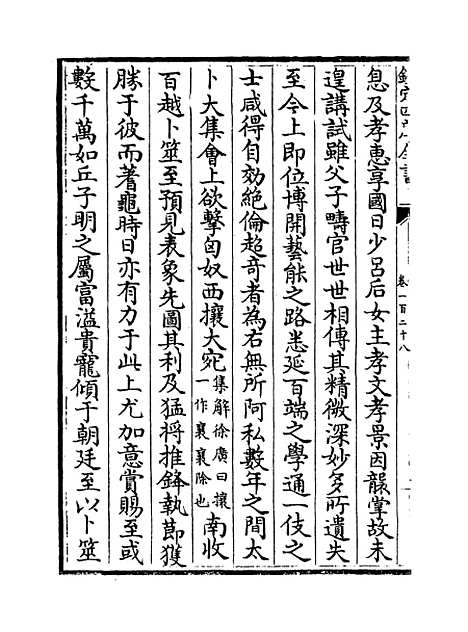 欽定四庫全書
卷一百二十八
息及孝惠享國日少呂后女主孝文孝景因襲掌故未
遑講試雖父子疇官世世相傳其精微深妙多所遺失
至今上即位博開藝能之路悉延百端之學通一伎之
士咸得自効絶倫超奇者為右無所阿私數年之間太
卜大集會上欲擊匈奴西攘大宛集解徐廣曰攘一作襄襄除也南收
百越卜筮至預見表象先圖其利及猛将推鋒執節獲
勝于彼而蓍龜時日亦有力于此上尤加意賞賜至或
數千萬如丘子明之屬富溢貴寵傾于朝廷至以卜筮